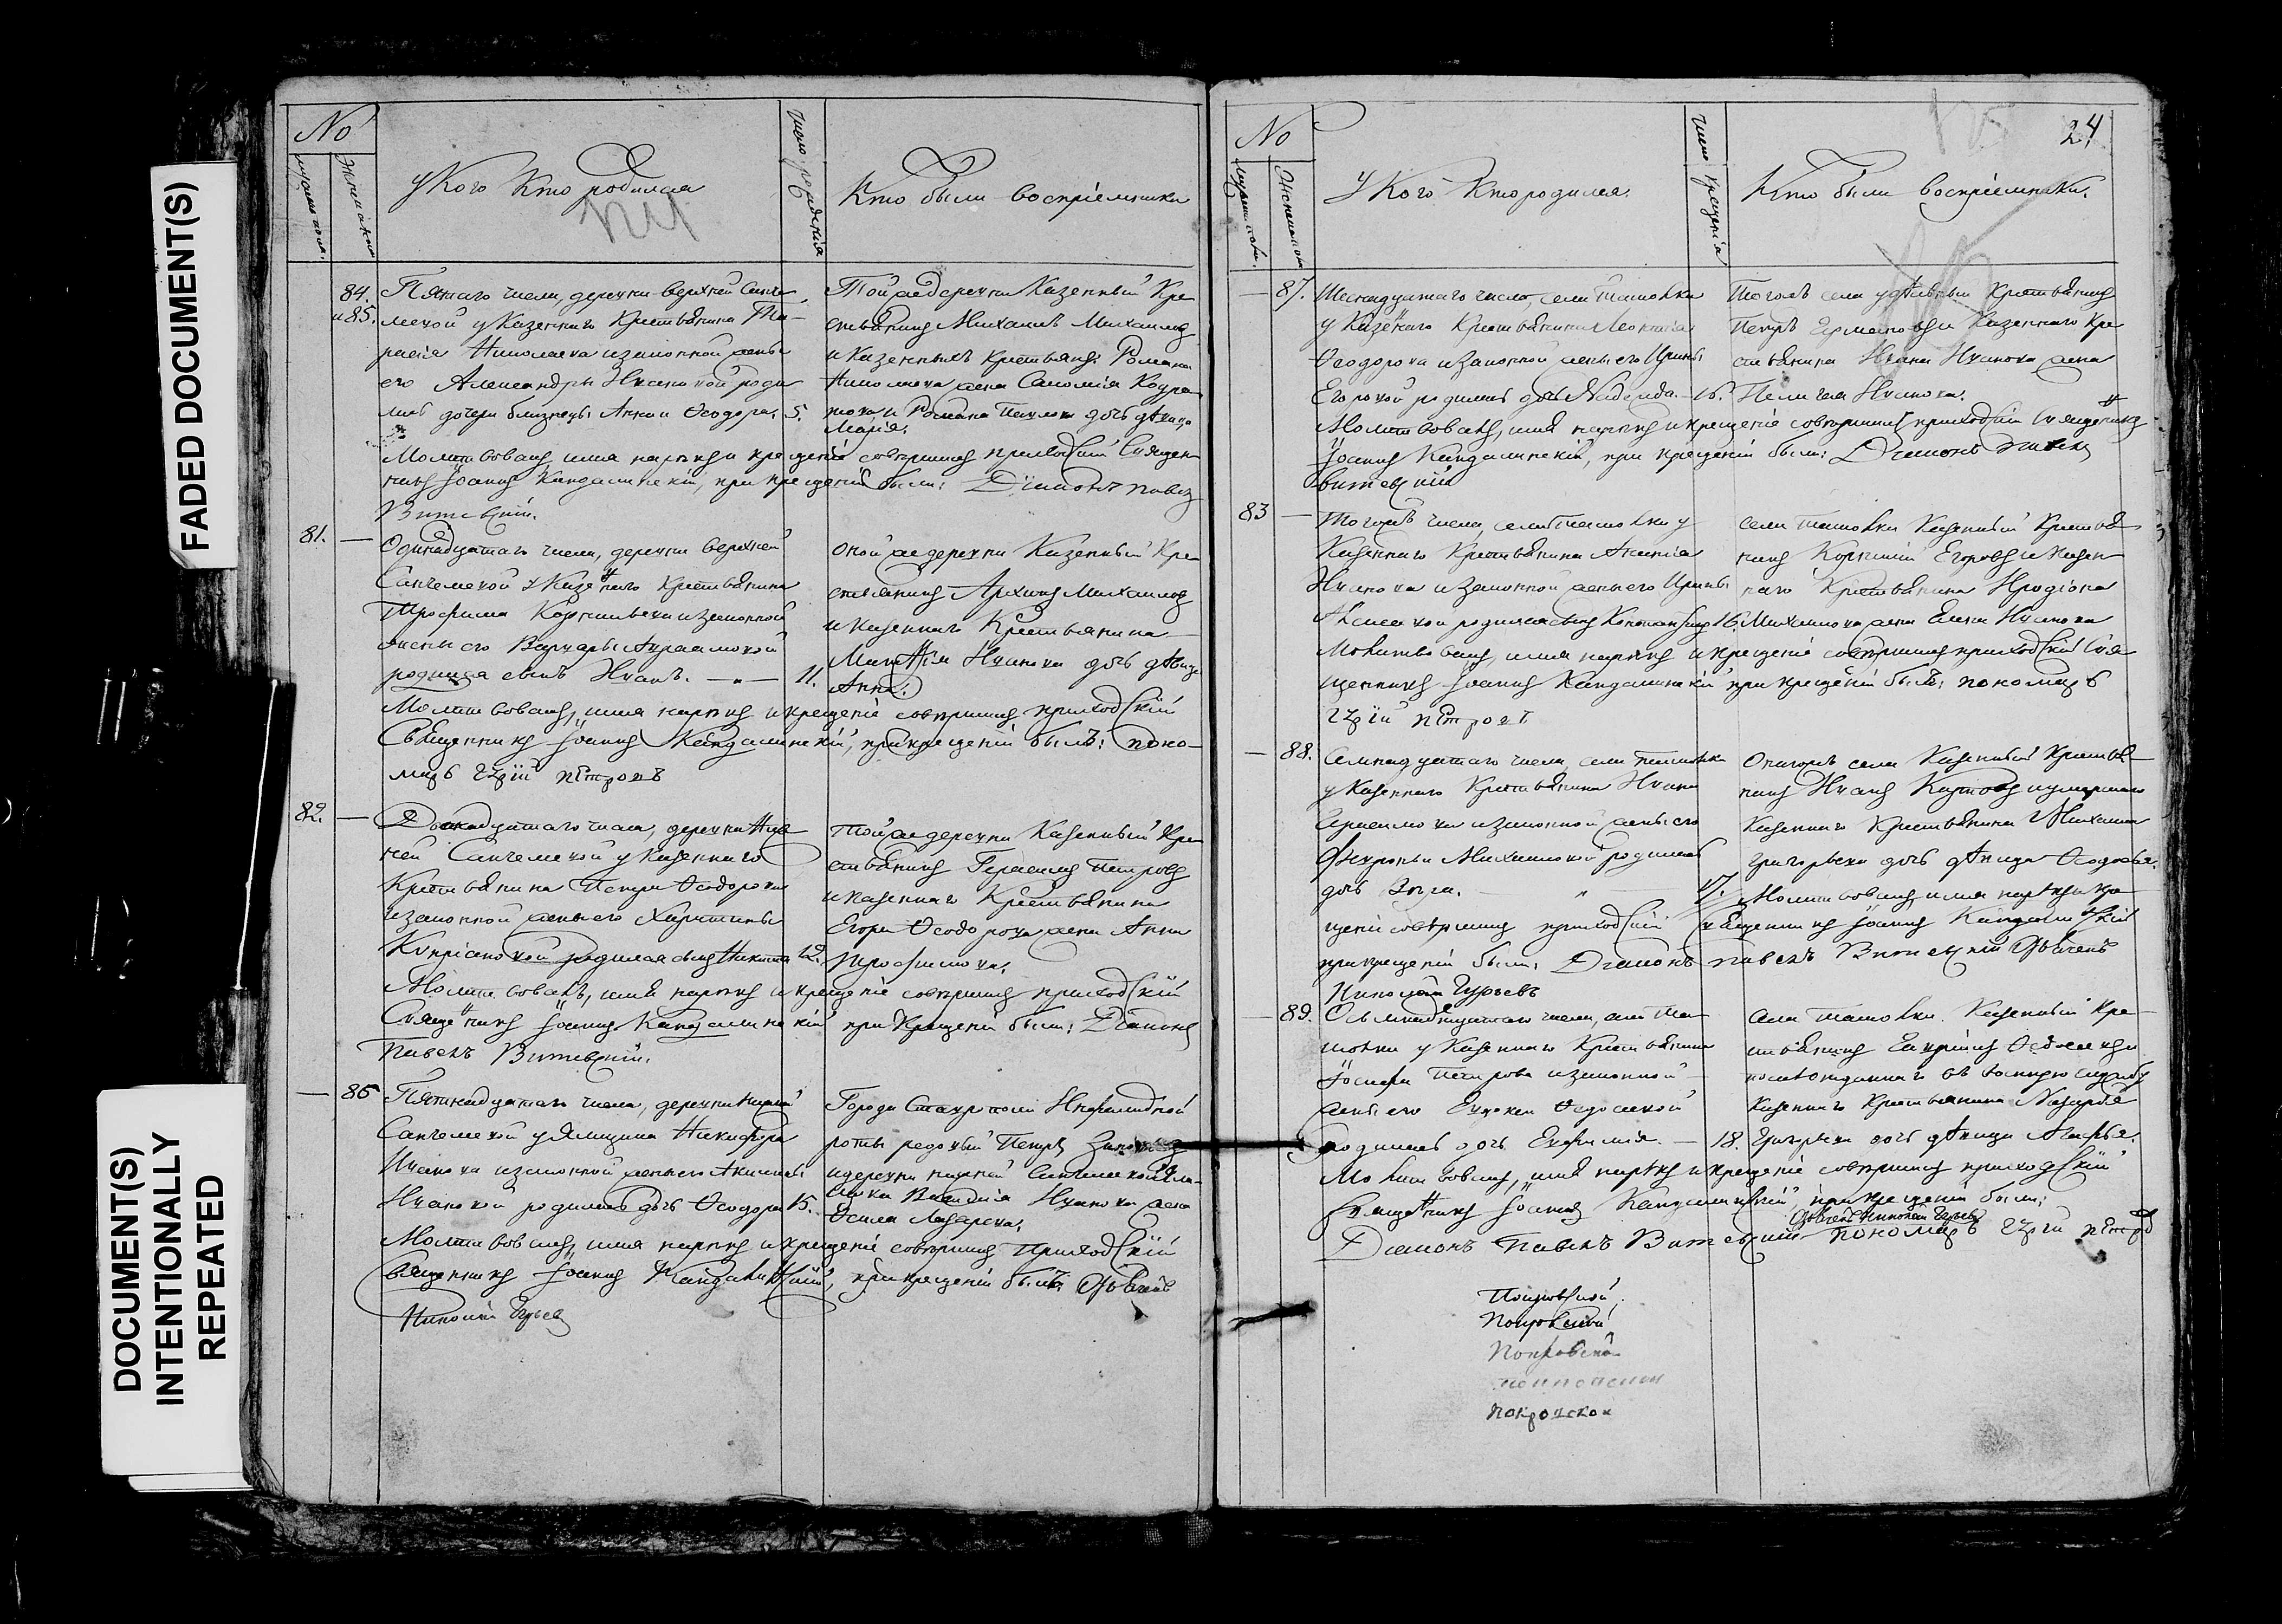 FADED DOCUMENT(S)
DOCUMENT(S)
INTENTIONALLY
REPEATED
No
мужеска пола.
Женска
у Кого Кто родился
число рождения
Кто были воспріемники
84.
и 85.
Пятаго числа, деревни верхней Санче
леевой у Казеннаго Крестьянина Та-
расія Николаева и законной жены
его Александры Ивановой роди
лись дочери близнецы Анна и Ѳеодора. 5.
Той же деревни Казенный Кре
стьянинъ Михаилъ Михаиловъ
и казенныхъ крестьянъ Романа
Николаева жена Саломія Кодра
това и Романа Павлова дочь дѣвица
Марія.
Молитвовалъ, имя нарекъ и крещеніе совершилъ приходскій Священ
никъ Іоаннъ Кандалинскій, при крещеніи были: Діаконъ Павелъ
Витевскій.
81.
Одинадцатаго числа, деревни верхней
Санчелеевой у Казеннаго Крестьянина
Трофима Корнильева и законной
жены его Варвары Авраамовой
родился сынъ Иванъ. 11.
оной же деревни Казенный Кре
стьянинъ Архипъ Михаиловъ
и казеннаго Крестьянина
Матѳія Иванова дочь дѣвица
Анна.
Молитвовалъ, имя нарекъ и крещеніе совершилъ приходскій
Священникъ Іоаннъ Кандалинскій, при крещеніи былъ: поно-
марь Петровъ
82.
Двенадцатаго числа, деревни Ниж
ней Санчелеевой у Казеннаго
Крестьянина Петра Ѳеодорова
и законной жены его Христины
Кипріановой родился сынъ Никита 12.
Той же деревни Казенный Кре
стьянинъ Герасимъ Петровъ
и казеннаго Крестьянина
Егора Ѳеодорова жена Анна
Трофимова.
Молитвовалъ, имя нарекъ и крещеніе совершилъ приходскій
Священникъ Іоаннъ Кандалинскій при крещеніи были: Діаконъ
Павелъ Витевскій.
86
Пятнадцатаго числа, деревни нижней
Санчелеевой у Ямщика Никифора
Иванова и законной жены его Акилины
Ивановой родилась дочь Ѳеодора 15.
Города Ставрополя Инвалидной
роты редовый Петръ
и деревни нижней Санчелеевой Ям-
щика Василія Иванова жена
Ѳекла Лазарева.
Молитвовалъ, имя нарекъ и крещеніе совершилъ Приходскій
Священникъ Іоаннъ Кандалинскій, при крещеніи былъ: Дьячекъ
Николай Гурьевъ
24
No
у Кого Кто родился.
число крещенія
Кто были воспріемники.
87.
Шеснадцатаго числа, села Ташовки
у Казеннаго Крестьянина Леонтія
Ѳеодорова и законной жены его Ирины
Егоровой родилась дочь Надежда. 16.
Тогожъ села удѣльный Крестьянинъ
Петръ Ермаковъ и Казеннаго Кре
стьянина Ивана Иванова жена
Пелагея Иванова.
Молитвовалъ, имя нарекъ и крещеніе совершилъ приходскій Священникъ
Іоаннъ Кандалинскій, при крещеніи были: Діаконъ Павелъ
Витевскій
83
Тогожъ числа, села Ташовки у
Казеннаго Крестьянина Ананія
Иванова и законной жены его Ирины
Алексеевой родился сынъ Константинъ 16.
села Ташовки Казенный Крестья
нинъ Корнилій Егоровъ и казен
наго Крестьянина Иродіона
Михаилова жена Елена Иванова
Молитвовалъ, имя нарекъ и крещеніе совершилъ приходскій Свя
щенникъ Іоаннъ Кандалинскій при крещеніи былъ: пономарь
Петровъ
88.
Семнадцатаго числа, села Ташовки
у Казеннаго Крестьянина Ивана
Герасимова и законной жены его
Февроньи Михаиловой родилась
дочь Вѣра. 17.
Онагожъ села Казенный Крестья
нинъ Иванъ Карповъ и умершаго
Казеннаго Крестьянина Михаила
Григорьева дочь дѣвица Ѳеодосья.
Молитвовалъ, имя нарекъ и кре
щеніе совершилъ приходскій Священникъ Іоаннъ Кандалинскій
при крещеніи были: Діаконъ Павелъ Витевскій Дьячекъ
Николай Гурьевъ
89.
Осьмнадцатаго числа, села Та
шовки у Казеннаго Крестьянина
Іосифа Петрова и законной
жены его Евдокеи Ѳедосеевой
родилась дочь Евфимія. 18.
села Ташовки Казенный Кре
стьянинъ Ѳедосеевъ и
въ военную службу
Казеннаго Крестьянина Назарья
Григорьева дочь дѣвица Агафья.
Молитвовалъ, имя нарекъ и крещеніе совершилъ приходскій
Священникъ Іоаннъ Кандалинскій при крещеніи были:
Дьячекъ Николай Гурьевъ
Діаконъ Павелъ Витевскій Пономарь Петровъ
Покровской
Покровской
Покровской
Покровской